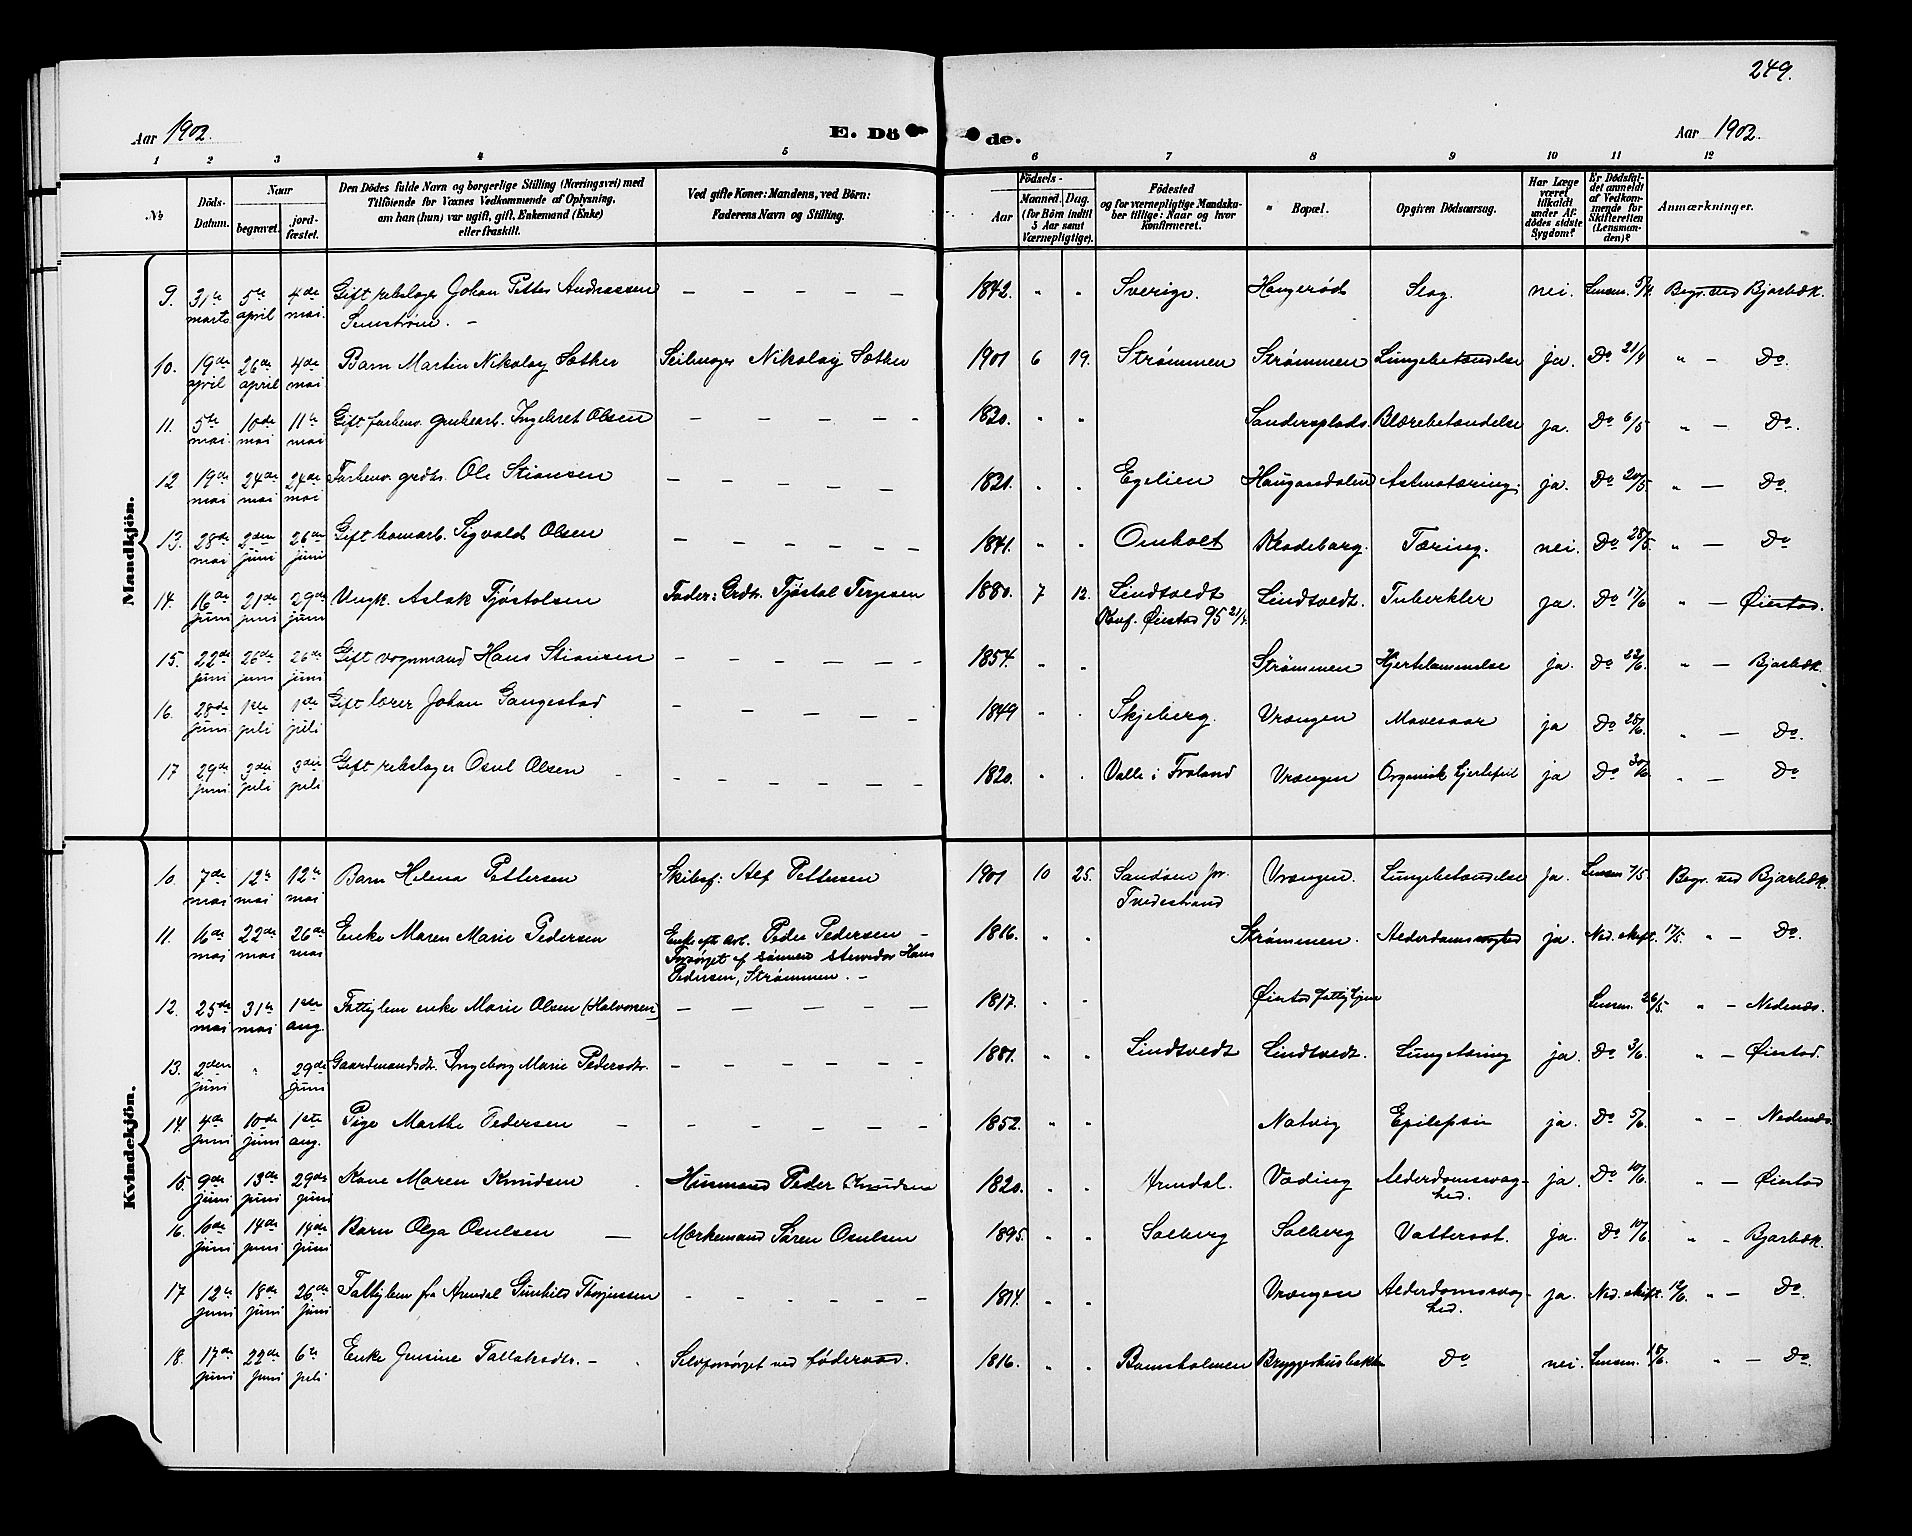 249.
Aar 1902. E. Dö de. Aar 1902.
1 2 3 4 5 6 7 8 9 10 11 12
№ Döds-Datum. Naar begravet. jord-fæstet. Den Dödes fulde Navn og borgerlige Stilling (Næringsvei) med Tilföiende for Voxnes Vedkommende af Oplysning, am han (hun) var ugift, gift, Enkemand (Enke) eller fraskilt. Ved gifte Koner: Mandens, ved Börn: Faderens Navn og Stilling. Födsels- Aar Maaned. Dag. (for Börn indtil 5 Aar samt Værnepligtige). Födested og for værnepligtige Mandskaber tillige: Naar og hvor konfirmeret. Bopæl. Opgiven Dödsaarsag. Har Læge været tilkaldt under Afdödes sidste Sygdom? Er Dödsfaldet anmeldt af Vedkommende for Skifteretten (Lensmanden)? Anmærkninger.
Mandkjön.
9. 31te marts 5te april 4de mai. Gift rebslager Johan Petter Andreassen Semstrøm. – – – – – – 1842. " " Sverige. Haugerød Slag. nei. Lensm. 5/4. Begr. ved Bjorbæk.
10. 19de april 26de april 4de mai Barn Martin Nikolay Sæther Seilmager Nikolay Sæther 1901 6 19. Strømmen Strømmen Lungebetændelse ja. Do 21/4 " – Do.
11. 5te mai. 10de mai 11te mai Gift forhenv. Ingebret Olsen – – – – – 1820. " " Sandersplads. Blærebetændelse ja. Do 6/5 " – Do.
12 19de mai 24de mai 24de mai Forhenv. grdbr. Ole Stiansen – – – – – 1821. " " Egelien Haugaasdalen Astmatæring. ja. Do 20/5 " – Do.
13. 28de mai 2den juni 26de juni Gift bomarb. Sigvald Olsen – – – – – – 1841. " " Omholt Klodeborg. Tæring. nei. Do 28/5. " – Do
14. 16de juni 21de juni 29de juni Ungk. Aslak Tjøstolsen Fader: Grdbr. Tjøstol Terjesen 1880. 7 12. Lindtvedt Konf. Øiestad 95 21/4. Lindtvedt. Tuberkler ja. Do 17/6 " – Øiestad.
15. 22de juni 26de juni 26de juni Gift vognmand Hans Stiansen – – – – – – 1854. " " Strømmen Hjertelammelse ja Do 23/6. " – Bjorbæk.
16. 28de juni 1ste juli 1ste juli Gift lærer Johan Gangestad – – – – – – 1849 " " Skjeberg. Vrængen Mavesaar ja Do 28/6. " – Do.
17 29de juni 3die juli 3die juli Gift rebslager Osul Olsen – – – – – – 1820. " " Valle i Froland Vrængen Organisk hjertefeil ja Do 30/6 " – Do
Kvindekjön.
10. 7de mai 12te mai 12te mai Barn Helena Pettersen Skibsf: Alf Pettersen 1901 10 25. Sandøen pr. Tvedestrand Vrængen. Lungebetændelse ja. Lensm 7/5 Begr. ved Bjorbæk.
11. 16de mai 22de mai 26de mai Enke Maren Marie Pedersen Enke eft. arb. Peder Pedersen – Forsørget af sønnen stuvedor Hans Pedersen, Strømmen. – 1816. " " Strømmen. Alderdomssvaghed ja. Ned. skift. 17/5 " – Do.
12. 25de mai 31te mai 1ste aug. Fattiglem enke Marie Olsen (Halvorsen) – – – – – – 1817. " " Øiestad fattighjem Lensm. 26/5. " – Nedenæs.
13. 2den juni " 29de juni Gaardmandsdtr. Ingeborg Marie Pedersdtr. – – – – – – 1881. " " Lindtvedt Lindtvedt. Lungetæring ja. Do 3/6. " – Øiestad.
14. 4de juni 10de juni 1ste aug. Pige Marthe Pedersen – – – – – – – 1852. " " Natvig Epilepsi ja. Do 5/6. " – Nedenæs.
15. 9de juni 13de juni 29de juni Kone Maren Knudsen Husmand Peder Knudsen 1820. " " Arendal. Vading Alderdomssvaghed. ja. Do 10/6. " – Øiestad
16. 6de juni 14de juni 14de juni Barn Olga Osulsen – Mærkemand Søren Osulsen 1895. " " Solberg Solberg Vattersot. ja. Do 10/6 " – Bjorbæk.
17 12te juni 18de juni 26de juni Fattiglem fra Arendal Gunhild Thorjussen – – – – – – 1814. " " Vrængen Alderdomssvaghed. ja. Ned. skift. 12/6. " – Do.
18. 17de juni 22de juni 6te juli Enke Gunsine Tallaksdtr. – Selvforsørget ved føderaad. 1816. " " Bomsholmen Bryggerhusbakken Do nei. Lensm. 18/6. " – Do.